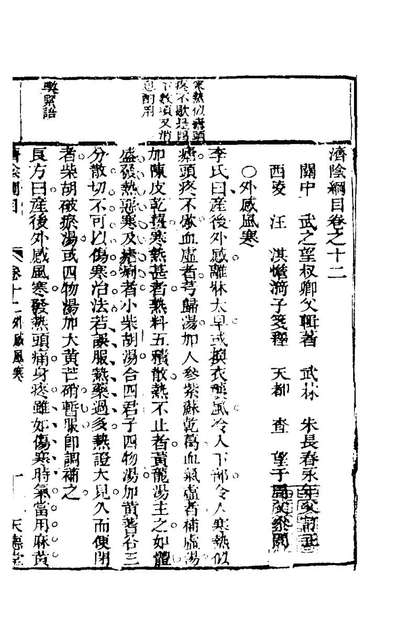 濟陰綱目卷之十二
關中 武之望叔卿父輯著 武林 朱長春永年父訂正
西陵 汪淇憺漪子箋釋 天都 查望于周父參閱
○外感風寒
李氏曰產後外感離牀太早或換衣襲風冷入下部令人寒熱似
瘧頭疼不歇血虛者芎歸湯加人參紫蘇乾葛血氣虛者補虛湯
加陳皮乾薑寒熱甚者熱料五積散熱不止者黃龍湯主之如體
盛發熱惡寒及瘧痢者小柴胡湯合四君子四物湯加黃耆名三
分散切不可以傷寒治法若誤服熱藥過多熱證大見久而便閉
者柴胡破瘀湯或四物湯加大黃芒硝暫服即調補之
良方曰產後外感風寒發熱頭痛身疼雖如傷寒時氣當用麻黃
寒熱似瘧頭
疼不歇
下數項又消
息酌用
緊語
濟陰綱目 卷十二外感風寒 一 天德堂